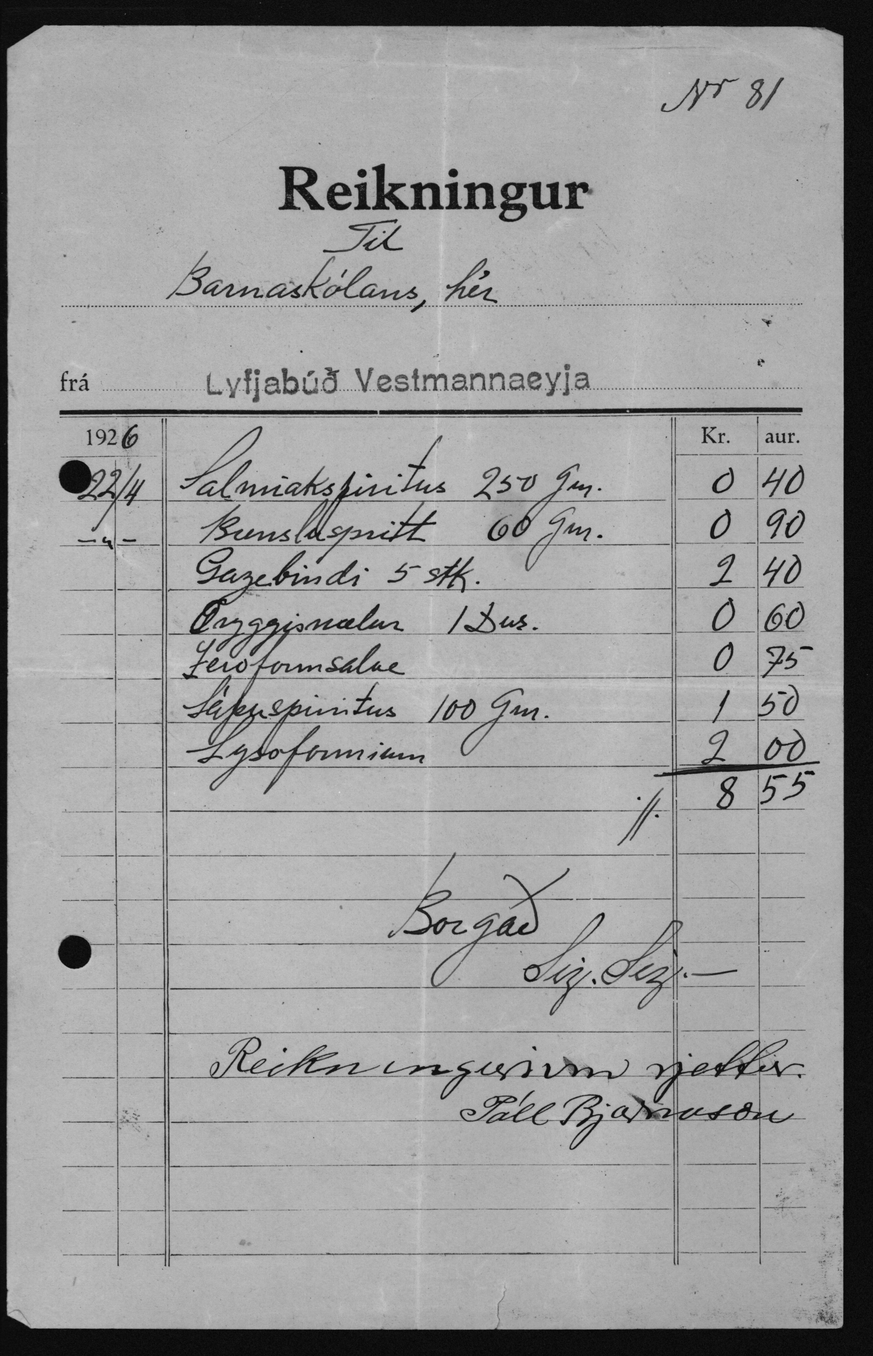 Nr 81
Reikningur
Til
Barnaskólans, hér
frá Lyfjabúð Vestmannaeyja
1926 Kr. aur.
22/4 Salmiakspiritus 250 Gm. 0 40
-"- Brensluspritt 60 Gm. 0 90
Gazebindi 5 stk. 2 40
Öryggisnælur 1 Dus. 0 60
Xeroformsalve 0 75
Sápuspiritus 100 Gm. 1 50
Lysoformium 2 00
//. 8 55
Borgað
Sig. Sig.-
Reikningurinn rjettur.
Páll Bjarnason